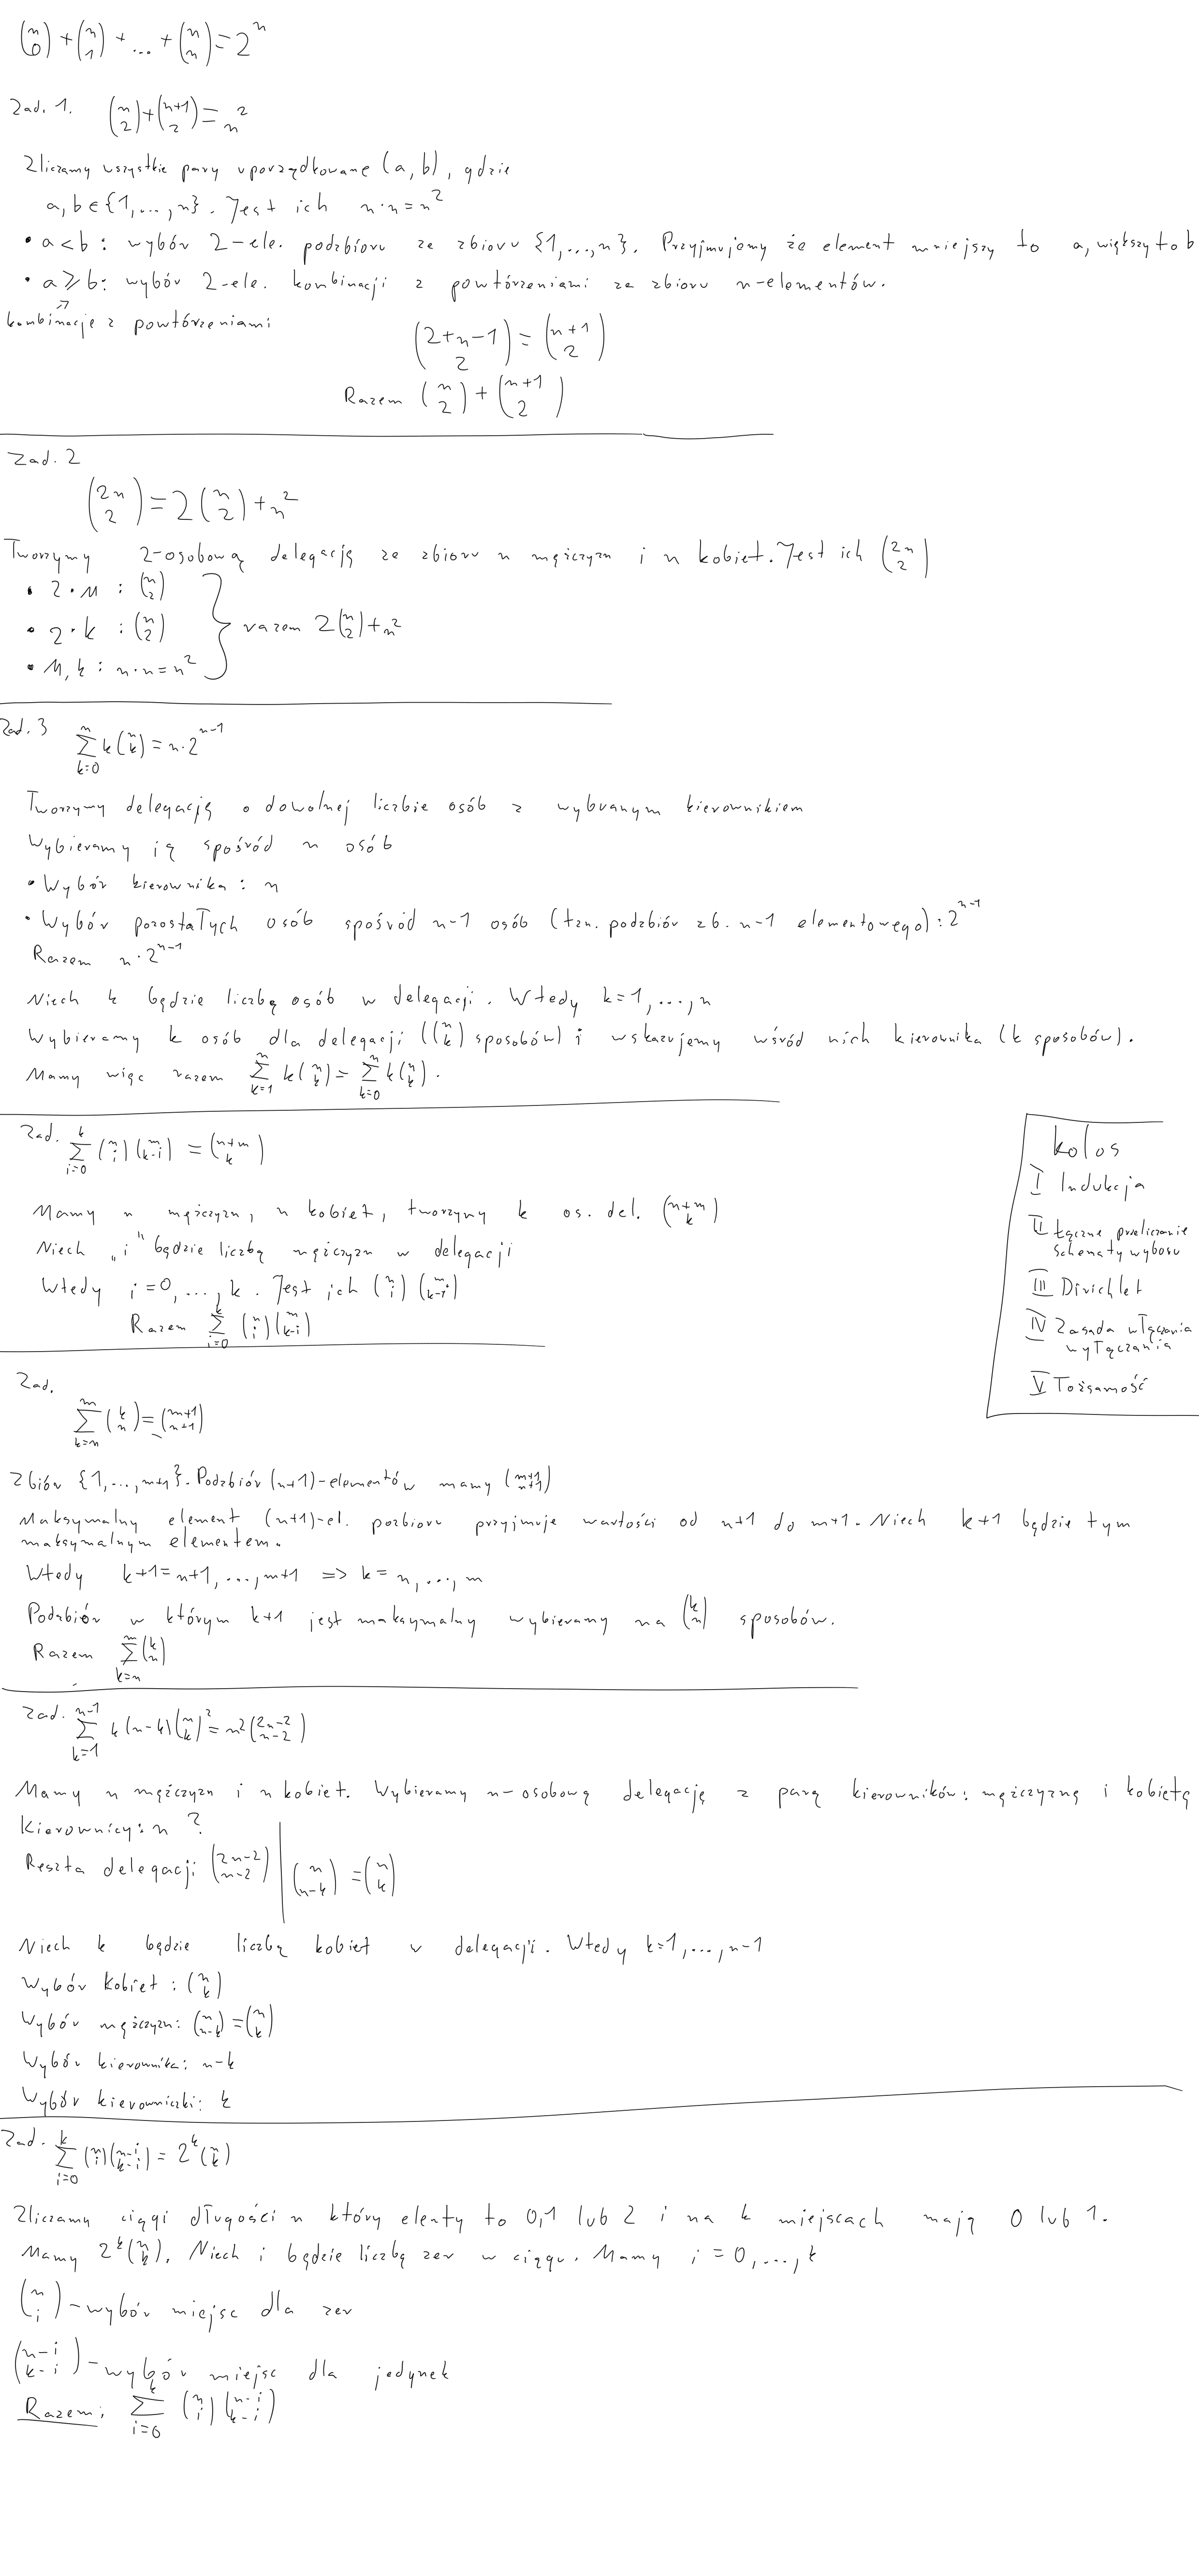 (n 0) + (n 1) + ... + (n n) = 2^n
Zad. 1. (n 2) + (n+1 2) = n^2
Zliczamy wszystkie pary uporządkowane (a, b), gdzie
a, b ∈ {1, ..., n}. Jest ich n·n = n^2
• a < b: wybór 2-ele. podzbioru ze zbioru {1, ..., n}. Przyjmujemy że element mniejszy to a, większy to b
• a ⩾ b: wybór 2-ele. kombinacji z powtórzeniami ze zbioru n-elementów.
kombinacje z powtórzeniami
(2+n-1 2) = (n+1 2)
Razem (n 2) + (n+1 2)
Zad. 2
(2n 2) = 2(n 2) + n^2
Tworzymy 2-osobową delegację ze zbioru n mężczyzn i n kobiet. Jest ich (2n 2)
• 2·M : (n 2)
• 2·k : (n 2) } razem 2(n 2) + n^2
• M, k : n·n = n^2
Zad. 3 ∑_{k=0}^{n} k(n k) = n·2^{n-1}
Tworzymy delegację o dowolnej liczbie osób z wybranym kierownikiem
Wybieramy ją spośród n osób
• Wybór kierownika: n
• Wybór pozostałych osób spośród n-1 osób (tzn. podzbiór zb. n-1 elementowego): 2^{n-1}
Razem n·2^{n-1}
Niech k będzie liczbą osób w delegacji. Wtedy k=1, ..., n
Wybieramy k osób dla delegacji ((n k) sposobów) i wskazujemy wśród nich kierownika (k sposobów).
Mamy więc razem ∑_{k=1}^{n} k(n k) = ∑_{k=0}^{n} k(n k).
Zad. ∑_{i=0}^{k} (n i)(m k-i) = (n+m k)
Mamy n mężczyzn, n kobiet, tworzymy k os. del. (n+m k)
Niech „i" będzie liczbą mężczyzn w delegacji
Wtedy i=0, ..., k. Jest ich (n i)(m k-i)
Razem ∑_{i=0}^{k} (n i)(m k-i)
kolos
I Indukcja
II Łączne przeliczanie
schematy wyboru
III Dirichlet
IV Zasada włączania
wyłączania
V Tożsamość
Zad.
∑_{k=n}^{m} (k n) = (m+1 n+1)
Zbiór {1, ..., m+1}. Podzbiór (n+1)-elementów mamy (m+1 n+1)
Maksymalny element (n+1)-el. pozbioru przyjmuje wartości od n+1 do m+1. Niech k+1 będzie tym
maksymalnym elementem.
Wtedy k+1 = n+1, ..., m+1 => k = n, ..., m
Podzbiór w którym k+1 jest maksymalny wybieramy na (k n) sposobów.
Razem ∑_{k=n}^{m} (k n)
Zad. ∑_{k=1}^{n-1} k(n-k)(n k)^2 = n^2(2n-2 n-2)
Mamy n mężczyzn i n kobiet. Wybieramy n-osobową delegację z parą kierowników: mężczyznę i kobietę
Kierownicy: n^2
Reszta delegacji (2n-2 n-2) | (n n-k) = (n k)
Niech k będzie liczbą kobiet w delegacji. Wtedy k=1, ..., n-1
Wybór kobiet : (n k)
Wybór mężczyzn: (n n-k) = (n k)
Wybór kierownika: n-k
Wybór kierowniczki: k
Zad. ∑_{i=0}^{k} (n i)(n-i k-i) = 2^k(n k)
Zliczamy ciągi długości n który elenty to 0,1 lub 2 i na k miejscach mają 0 lub 1.
Mamy 2^k(n k). Niech i będzie liczbą zer w ciągu. Mamy i = 0, ..., k
(n i) - wybór miejsc dla zer
(n-i k-i) - wybór miejsc dla jedynek
Razem: ∑_{i=0}^{k} (n i)(n-i k-i)